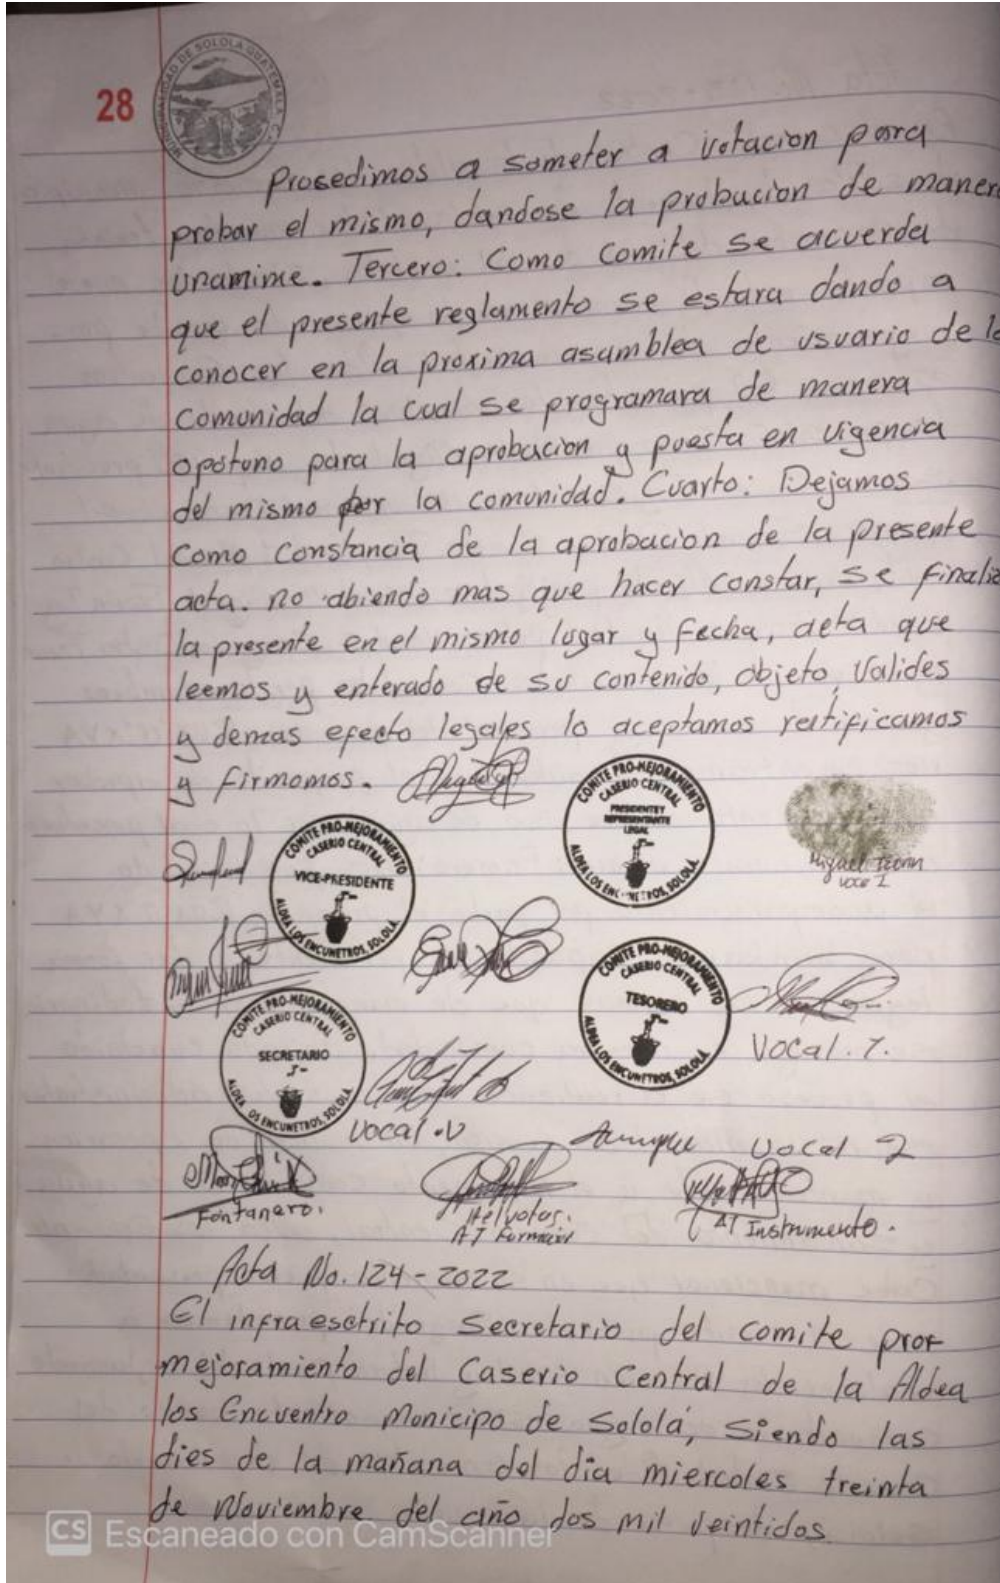 28
MUNICIPALIDAD DE SOLOLA GUATEMALA, C.A.
Procedimos a someter a votacion para
probar el mismo, dandose la probacion de maner
unamime. Tercero: Como Comite se acuerda
que el presente reglamento se estara dando a
conocer en la proxima asamblea de usuario de la
Comunidad la cual se programara de manera
opotuno para la aprobacion y puesta en vigencia
del mismo por la comunidad. Cuarto: Dejamos
Como Constancia de la aprobacion de la presente
acta. no abiendo mas que hacer constar, se finaliz
la presente en el mismo lugar y fecha, acta que
leemos y enterado de su contenido, objeto, valides
y demas efecto legales lo aceptamos ratificamos
y firmomos.
COMITE PRO-MEJORAMIENTO
CASERIO CENTRAL
PRESIDENTE Y
REPRESENTANTE
LEGAL
ALDEA LOS ENCUNETROS, SOLOLÁ
Miguel
Vocal I
COMITE PRO-MEJORAMIENTO
CASERIO CENTRAL
VICE-PRESIDENTE
ALDEA LOS ENCUNETROS, SOLOLÁ.
COMITE PRO-MEJORAMIENTO
CASERIO CENTRAL
TESORERO
ALDEA LOS ENCUNETROS, SOLOLÁ.
Vocal. 7.
COMITE PRO-MEJORAMIENTO
CASERIO CENTRAL
SECRETARIO
ALDEA LOS ENCUNETROS, SOLOLÁ
Vocal.V
Vocal 2
Fontanero.
Helvetas.
AT Formación
AT Instrumento.
Acta No. 124-2022
El infraesctrito Secretario del comite pror
mejoramiento del Caserio Central de la Aldea
los Encuentro Municipo de Sololá, Siendo las
dies de la mañana del dia miercoles treinta
de Noviembre del año dos mil veintidos
CS Escaneado con CamScanner